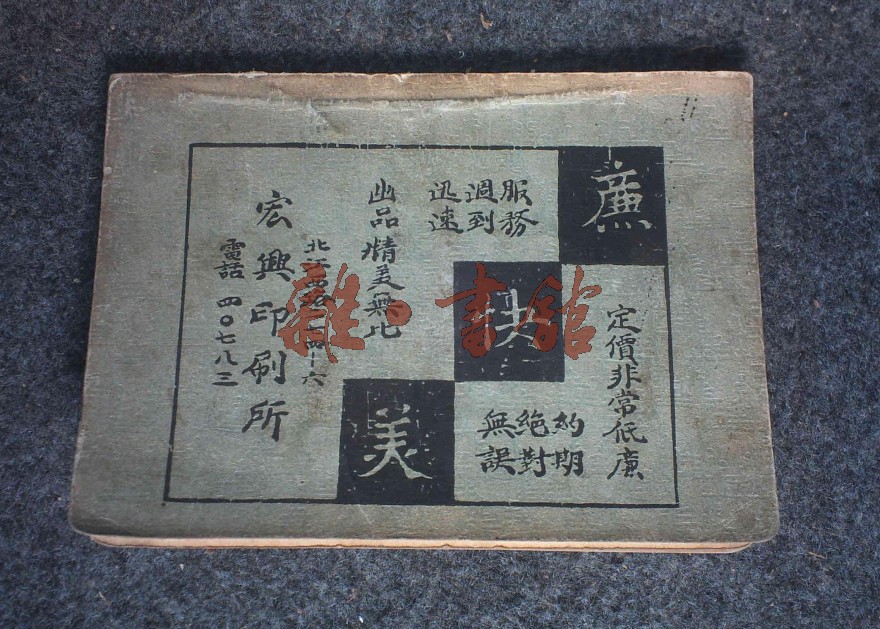 廉
定價非常低廉
快
約期
絕對
無誤
服務
週到
迅速
美
出品精美無比
北江西路 四十六
宏興印刷所
電話 四〇七八三
雜·書館